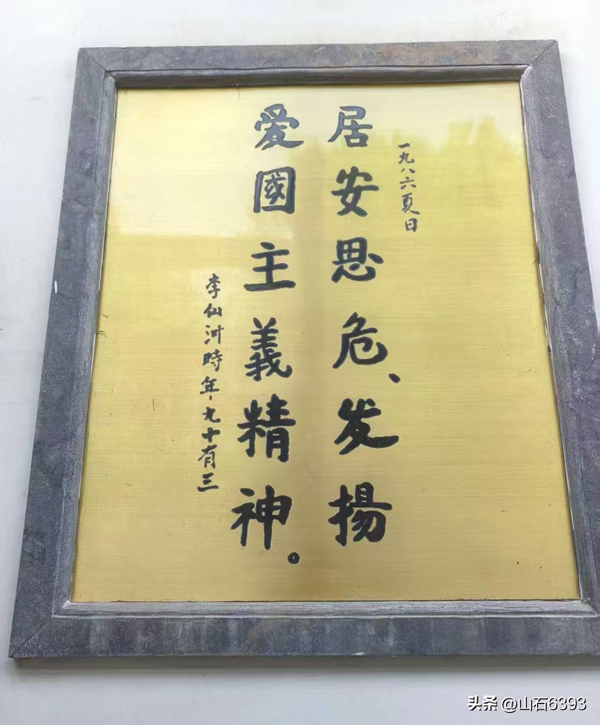 一九八六夏日
居安思危、发揚
爱國主義精神。
李仙洲時年九十有三
头条 @山石6393